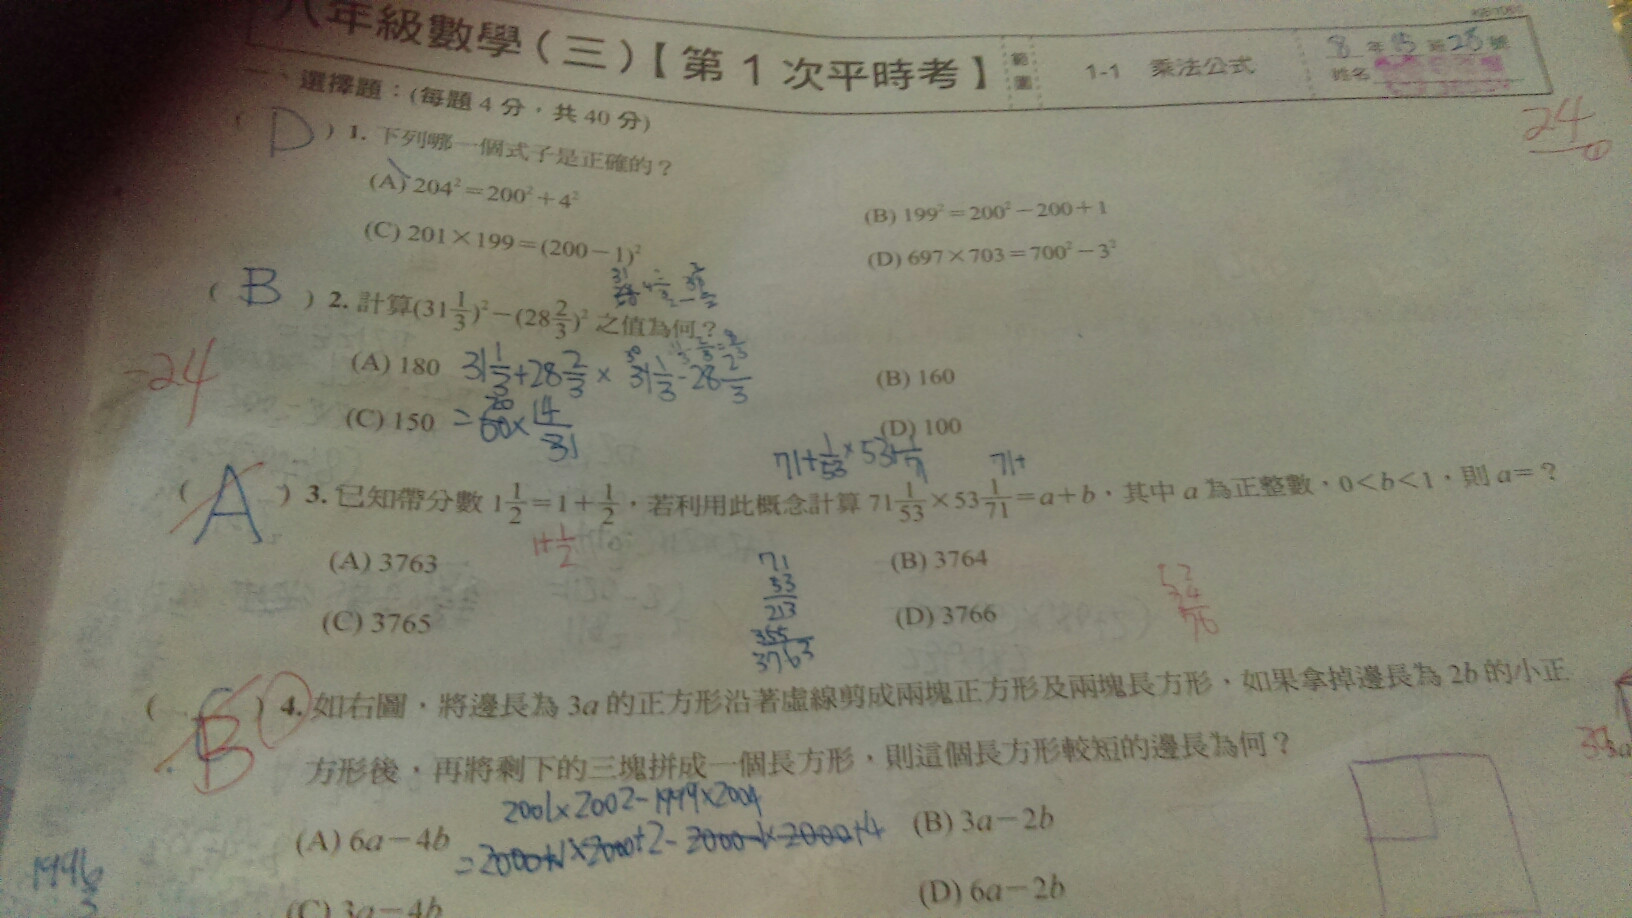 八年級數學(三)【第1次平時考】 範圍 1-1 乘法公式 8年15班28號
姓名
24
一、選擇題：(每題4分，共40分)
( D ) 1. 下列哪一個式子是正確的？
(A) 204²=200²+4²
(B) 199²=200²−200+1
(C) 201×199=(200−1)²
(D) 697×703=700²−3²
( B ) 2. 計算(31 1/3)²−(28 2/3)²之值為何？
-24
(A) 180
31 1/3+28 2/3 × 31 1/3-28 2/3
(B) 160
(C) 150
(D) 100
71+1/53×53+1/71 71+
( A ) 3. 已知帶分數 1 1/2=1+1/2，若利用此概念計算 71 1/53×53 1/71=a+b，其中a為正整數，0<b<1，則a=？
1+1/2
(A) 3763
(B) 3764
71
53
213
355
3763
(C) 3765
(D) 3766
( B ) 4. 如右圖，將邊長為3a的正方形沿著虛線剪成兩塊正方形及兩塊長方形，如果拿掉邊長為2b的小正
方形後，再將剩下的三塊拼成一個長方形，則這個長方形較短的邊長為何？
2001×2002-1999×2004
(A) 6a−4b
=2000+1×2000+2-2000-1×2000+4
(B) 3a−2b
1996
(C) 3a−4b
(D) 6a−2b